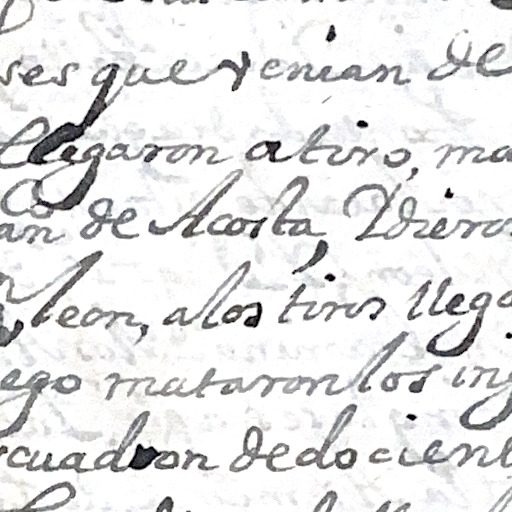 ses que venian de
llegaron a tiro, ma
an de Acosta, Y dieron
leon, a los tiros llega
ego mataron los ing
scuadron de docient